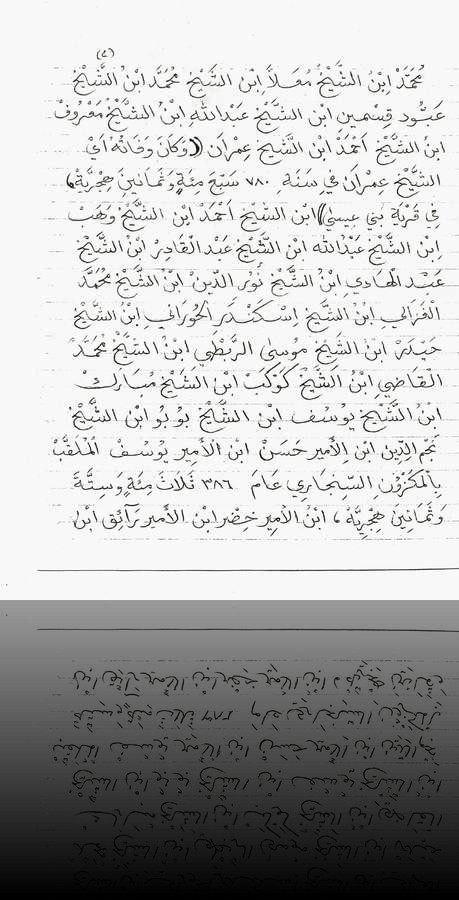 (٧)
مُحَمَّدْ ابْنُ الشَّيْخُ مُعَلاَّ ابْنُ الشَّيْخِ مُحُمَّد ابْنُ الشَّيْخ
عَبُّود قِسْمين ابْن الشَّيْخْ عَبْدِاللهِ ابْنُ الشَّيْخْ مَعْرُوفْ
ابنُ الشَّيْخْ اَحْمَدْ ابْنُ الشَّيخِ عِمْرَان (( وَكَانَ وَفَاتُهُ اَيْ
الشَّيْخِ عِمْرَان فِي سَنَةِ ٧٨٠ سَبْعَ مِئَةٍ وَثَمَانينَ هِجْرِيَّة،
فِي قَرْيَة بَني عِيسىٰ )) ابْن الشيخ اَحْمَدْ ابْن الشَّيخْ وَهَبْ
ابْن الشَّيخْ عَبْدُالله ابْن الشَّيخ عَبدالقَادِرْ ابْنُ الشَّيْخ
عَبْد الهَادِي ابْنُ الشَّيْخ نُوْر الدِّينْ ابْنُ الشَّيخْ مُحَمَّد
الْغَزَالي ابْنُ الشَّيخ اسْكَنْدَر الْحُورَاني ابْنُ الشَّيْخ
حَيْدَرْ ابنُ الشَيخ مُوسىٰ الرَّبْطي ابْنُ الشَيخْ مُحَمَّدْ
القَاضِي ابْنُ الشَّيْخْ كَوْكَبْ ابْن الشَيْخْ مُبَارَكْ
ابْنُ الشَّيْخ يُوسُف ابْن الشَّيخْ بُوبُو ابْن الشَّيْخْ
نَجم الدِّين ابْن الأمير حَسَنْ ابْن الأمير يُوسُفْ الْمُلَقَّبْ
بِالمَكزُوْن السِّنْجَاري عَامَ ٣٨٦ ثَلَاثَ مِئَةٍ وَسِتَّةَ
وَثَمَانِينَ هِجْريَّهْ ، ابْنُ الأمِير خِضْر ابْنُ الأمير رَآئِق ابْن